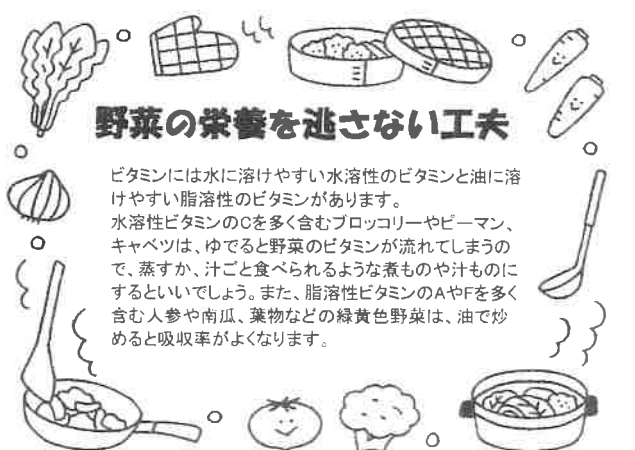 野菜の栄養を逃さない工夫
ビタミンには水に溶けやすい水溶性のビタミンと油に溶
けやすい脂溶性のビタミンがあります。
水溶性ビタミンのCを多く含むブロッコリーやピーマン、
キャベツは、ゆでると野菜のビタミンが流れてしまうの
で、蒸すか、汁ごと食べられるような煮ものや汁ものに
するといいでしょう。また、脂溶性ビタミンのAやFを多く
含む人参や南瓜、葉物などの緑黄色野菜は、油で炒
めると吸収率がよくなります。